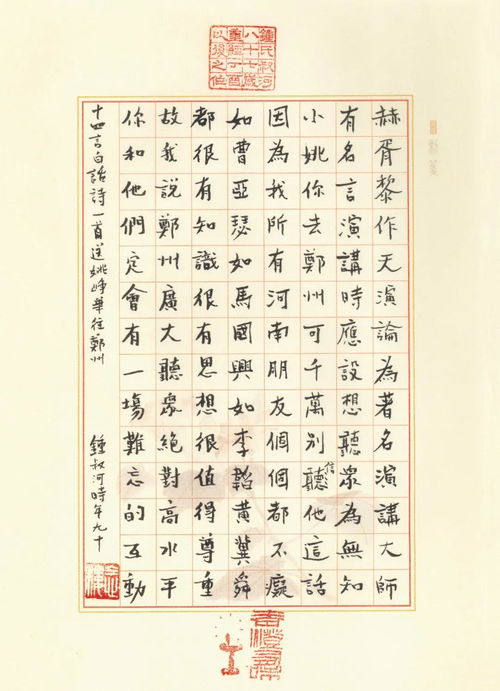 鍾氏叔河
八十七歲
重經丁酉
以後之作
赫胥黎作天演論為著名演講大師
有名言演講時應設想聽眾為無知
小姚你去鄭州可千萬別聽信他這話
因為我所有河南朋友個個都不癡
如曹亞瑟如馬國興如李韜黃冀舜
都很有知識很有思想很值得尊重
故我說鄭州廣大聽眾絕對高水平
你和他們定會有一場難忘的互動
十四言白話詩一首送姚崢華往鄭州
鍾叔河時年九十